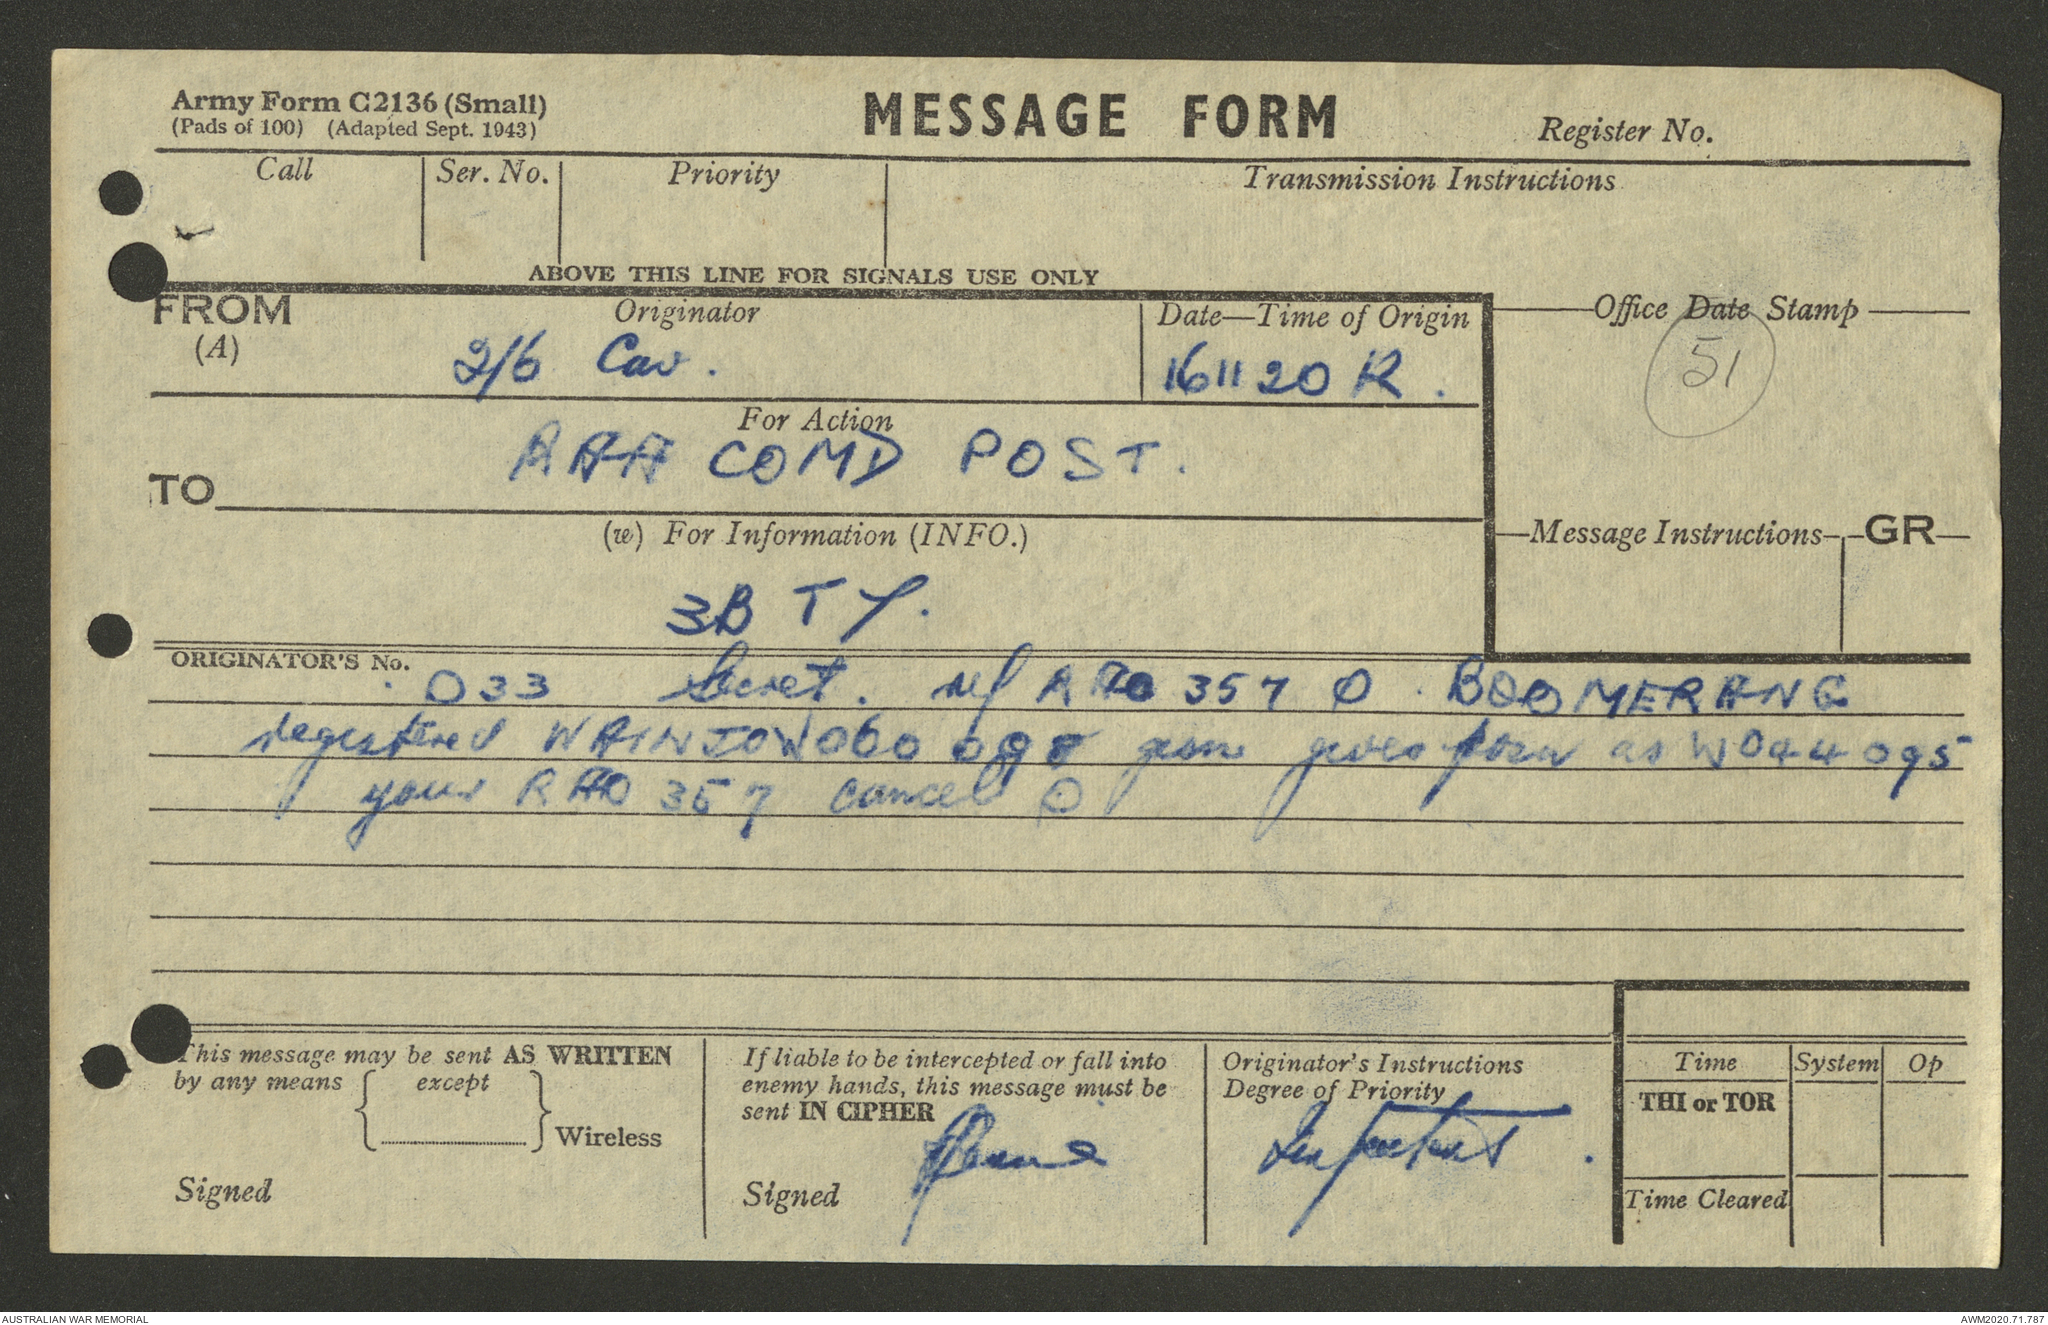 Army Form C2136 (Small)
(Pads of 100) (Adapted Sept. 1943)
MESSAGE FORM
Register No.
Call
Ser. No.
Priority
Transmission Instructions
ABOVE THIS LINE FOR SIGNALS USE ONLY
FROM
(A)
Originator
2/6 Cav.
Date—Time of Origin
161120 R.
Office Date Stamp
51
For Action
TO
COMD POST.
(w) For Information (INFO.)
3 BTY.
Message Instructions
GR
ORIGINATOR'S No.
O33 Secret. ref 357 O. BOOMERANG
registered 060 gives posn as W044095
your 357 cancel O
This message may be sent AS WRITTEN
by any means { except } Wireless
Signed
If liable to be intercepted or fall into
enemy hands, this message must be
sent IN CIPHER
Signed
Originator's Instructions
Degree of Priority
Important.
Time
System
Op
THI or TOR
Time Cleared
AUSTRALIAN WAR MEMORIAL
AWM2020.71.787